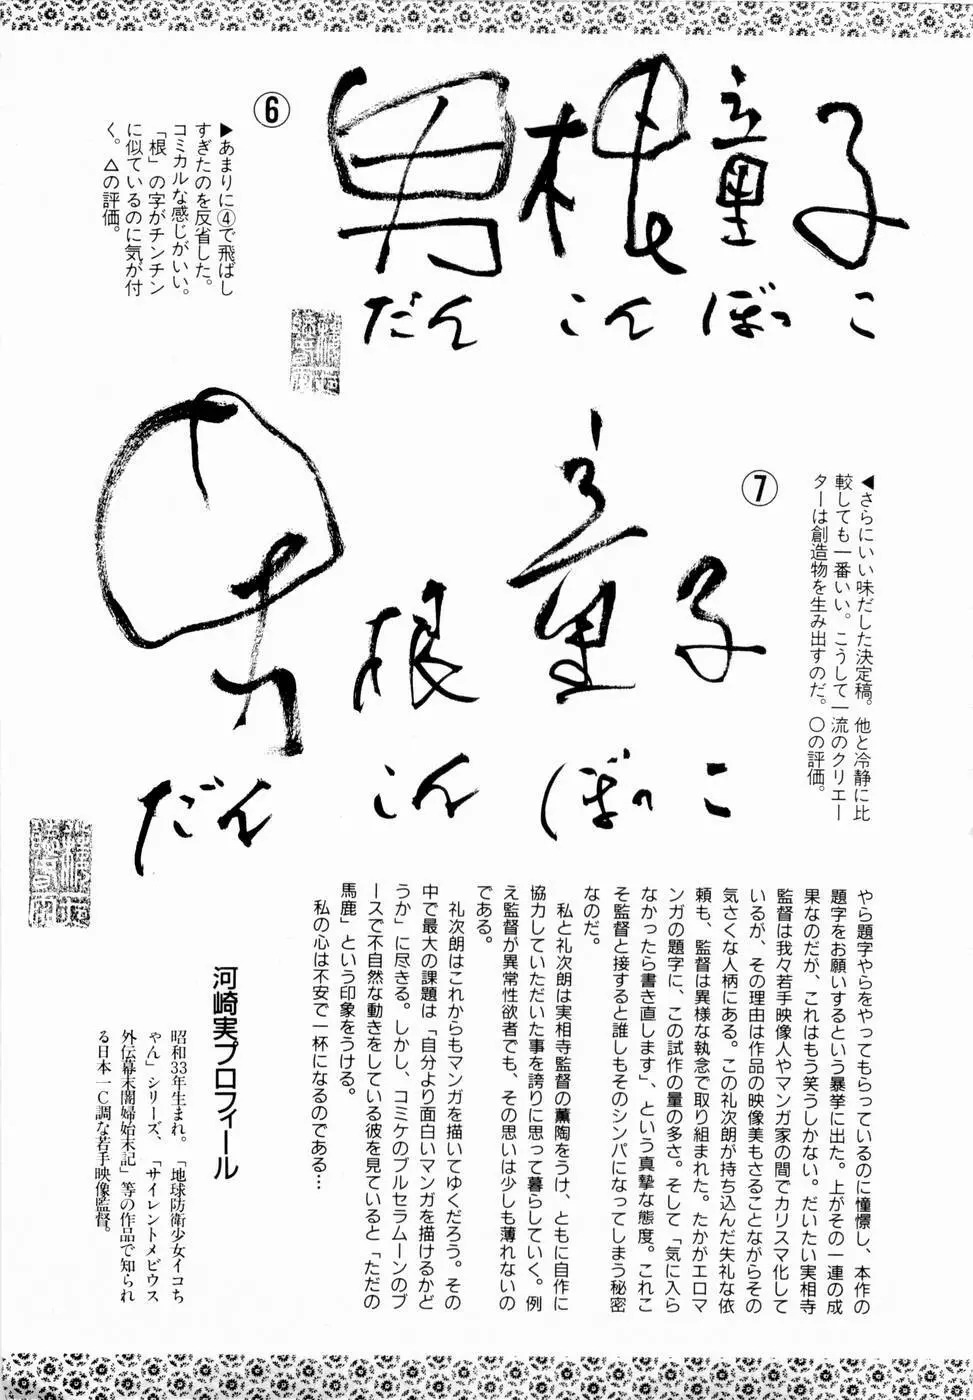 男根童子
だんこんぼっこ
⑥
▶あまりに④で飛ばし
すぎたのを反省した。
コミカルな感じがいい。
「根」の字がチンチン
に似ているのに気が付
く。△の評価。
◀さらにいい味だした決定稿。他と冷静に比
較しても一番いい。こうして一流のクリエー
ターは創造物を生み出すのだ。○の評価。
⑦
男根童子
だんこんぼっこ
やら題字やらをやってもらっているのに憧憬し、本作の
題字をお願いするという暴挙に出た。上がその一連の成
果なのだが、これはもう笑うしかない。だいたい実相寺
監督は我々若手映像人やマンガ家の間でカリスマ化して
いるが、その理由は作品の映像美もさることながらその
気さくな人柄にある。この礼次朗が持ち込んだ失礼な依
頼も、監督は異様な執念で取り組まれた。たかがエロマ
ンガの題字に、この試作の量の多さ。そして「気に入ら
なかったら書き直します」、という真摯な態度。これこ
そ監督と接すると誰しもそのシンパになってしまう秘密
なのだ。
私と礼次朗は実相寺監督の薫陶をうけ、ともに自作に
協力していただいた事を誇りに思って暮らしていく。例
え監督が異常性欲者でも、その思いは少しも薄れないの
である。
礼次朗はこれからもマンガを描いてゆくだろう。その
中で最大の課題は「自分より面白いマンガを描けるかど
うか」に尽きる。しかし、コミケのブルセラムーンのブ
ースで不自然な動きをしている彼を見ていると「ただの
馬鹿」という印象をうける。
私の心は不安で一杯になるのである…
河崎実プロフィール
昭和33年生まれ。「地球防衛少女イコち
ゃん」シリーズ、「サイレントメビウス
外伝幕末闇婦始末記」等の作品で知られ
る日本一C調な若手映像監督。